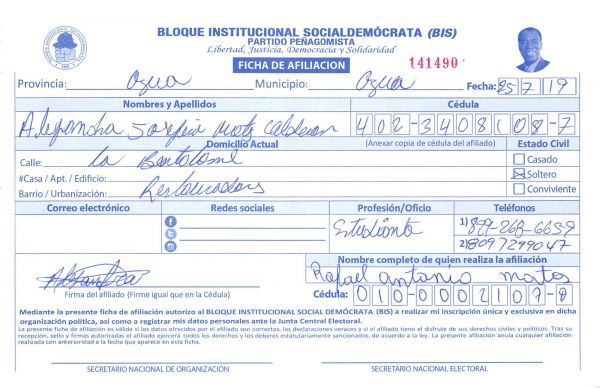 BLOQUE INSTITUCIONAL SOCIALDEMÓCRATA (BIS)
PARTIDO PEÑAGOMISTA
Libertad, Justicia, Democracia y Solidaridad
FICHA DE AFILIACION 141490
Provincia: Azua Municipio: Azua Fecha: 25/7/19
Nombres y Apellidos Cédula
Alejandra Josefina Matos Calderon 402-3408108-7
Domicilio Actual (Anexar copia de cédula del afiliado) Estado Civil
Calle: La Bartolomé Casado
#Casa / Apt. / Edificio: Soltero
Barrio / Urbanización: Restauradores Conviviente
Correo electrónico Redes sociales Profesión/Oficio Teléfonos
Estudiante 1) 829-268-6659
2) 8097299047
Nombre completo de quien realiza la afiliación
Rafael antonio matos
Firma del afiliado (Firme igual que en la Cédula) Cédula: 010-0002107-8
Mediante la presente ficha de afiliación autorizo al BLOQUE INSTITUCIONAL SOCIAL DEMÓCRATA (BIS) a realizar mi inscripción única y exclusiva en dicha
organización política, así como a registrar mis datos personales ante la Junta Central Electoral.
La presente ficha de afiliación es válida si los datos ofrecidos por el afiliado son correctos, las declaraciones veraces y si el afiliado tiene el disfrute de sus derechos civiles y políticos. Tras su
recepción, sello y firmas autorizadas el afiliado ejercerá todos los derechos y los deberes estatutariamente sancionados, de acuerdo a la ley. La presente afiliación anula cualquier afiliación
realizada con anterioridad a la fecha que aparece en esta ficha.
SECRETARIO NACIONAL DE ORGANIZACIÓN SECRETARIO NACIONAL ELECTORAL